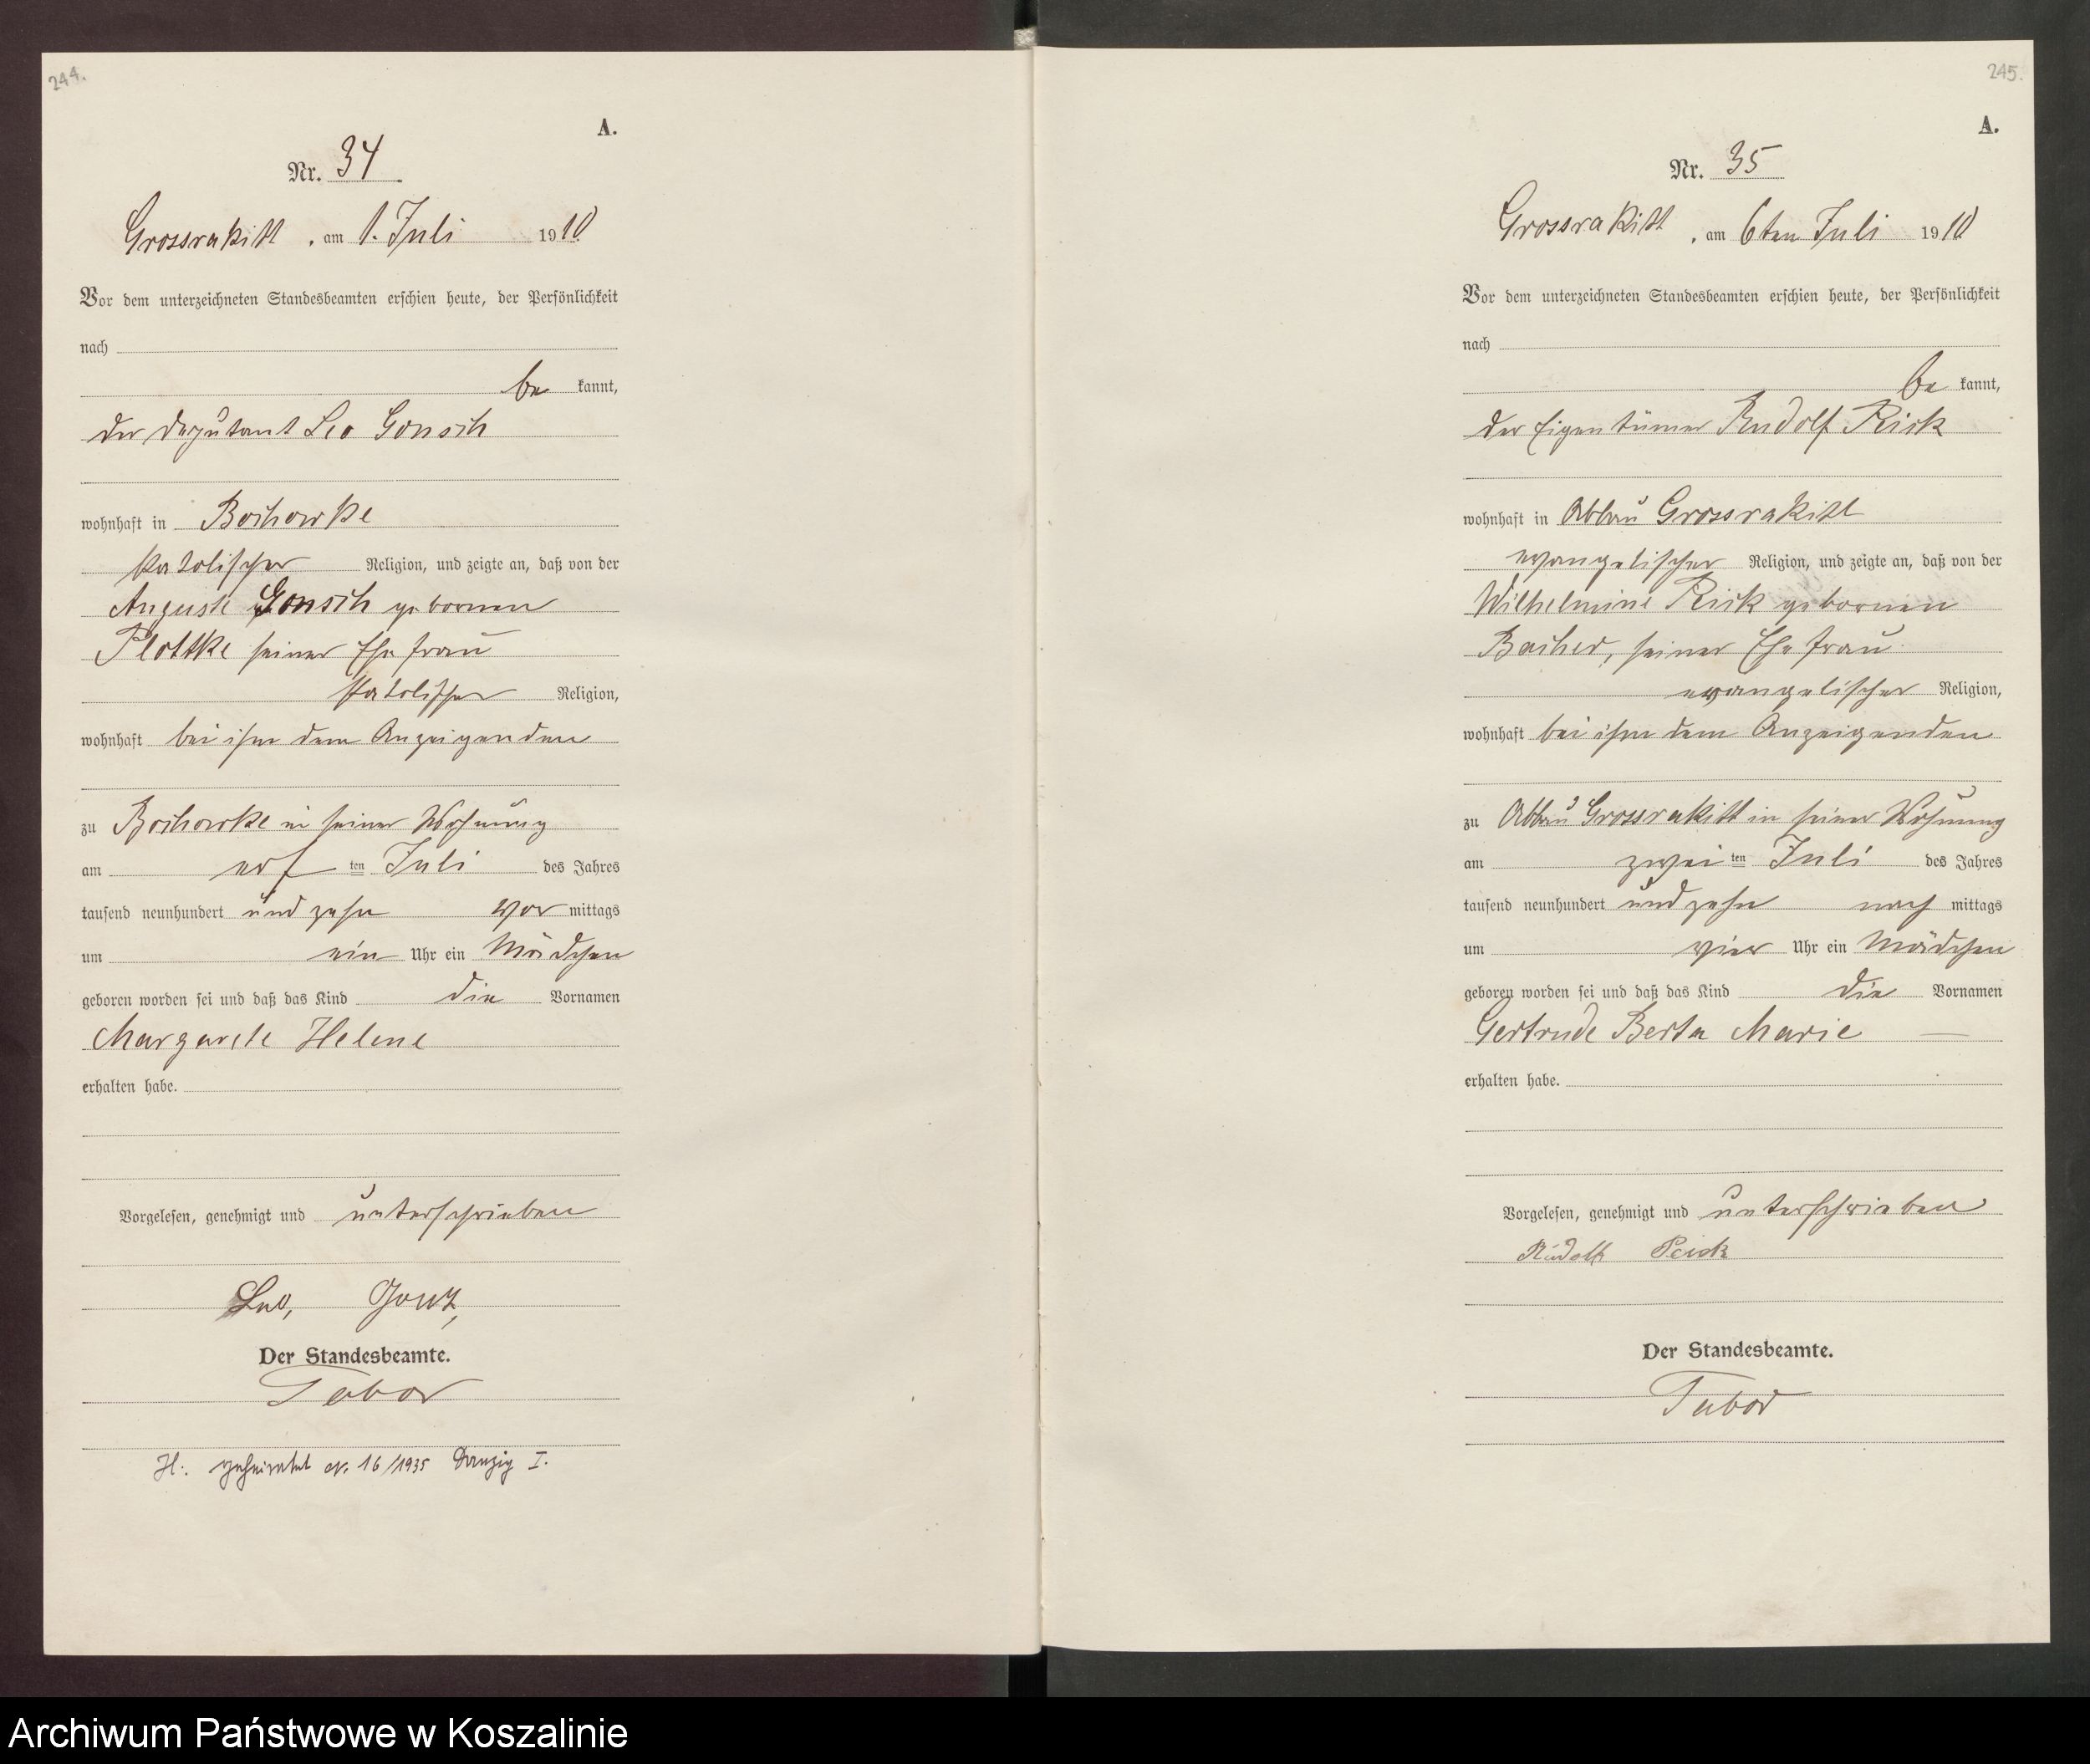 244.
A.
Nr. 34
Grossrakitt, am 1. Juli 1910
Vor dem unterzeichneten Standesbeamten erschien heute, der Persönlichkeit
nach
be kannt,
der Deputant Leo Gonsch
wohnhaft in Bochowke
katolischer Religion, und zeigte an, daß von der
Auguste Gonsch geborenen
Plottke seiner Ehefrau
katolischer Religion,
wohnhaft bei ihm dem Anzeigenden
zu Bochowke in seiner Wohnung
am ersten Juli des Jahres
tausend neunhundert und zehn vor mittags
um ein Uhr ein Mädchen
geboren worden sei und daß das Kind die Vornamen
Margarete Helene
erhalten habe.
Vorgelesen, genehmigt und unterschrieben
Leo,
Der Standesbeamte.
Tabor
H.: geheiratet Nr. 16/1935 Danzig I.
245.
A.
Nr. 35
Grossrakitt, am 6ten Juli 1910
Vor dem unterzeichneten Standesbeamten erschien heute, der Persönlichkeit
nach
be kannt,
der Eigentümer Rudolf
wohnhaft in Abbau Grossrakitt
evangelischer Religion, und zeigte an, daß von der
Wilhelmine geborenen
seiner Ehefrau
evangelischer Religion,
wohnhaft bei ihm dem Anzeigenden
zu Abbau Grossrakitt in seiner Wohnung
am zwei ten Juli des Jahres
tausend neunhundert und zehn nach mittags
um vier Uhr ein Mädchen
geboren worden sei und daß das Kind die Vornamen
Gertrude Berta Marie
erhalten habe.
Vorgelesen, genehmigt und unterschrieben
Rudolf
Der Standesbeamte.
Tabor
Archiwum Państwowe w Koszalinie